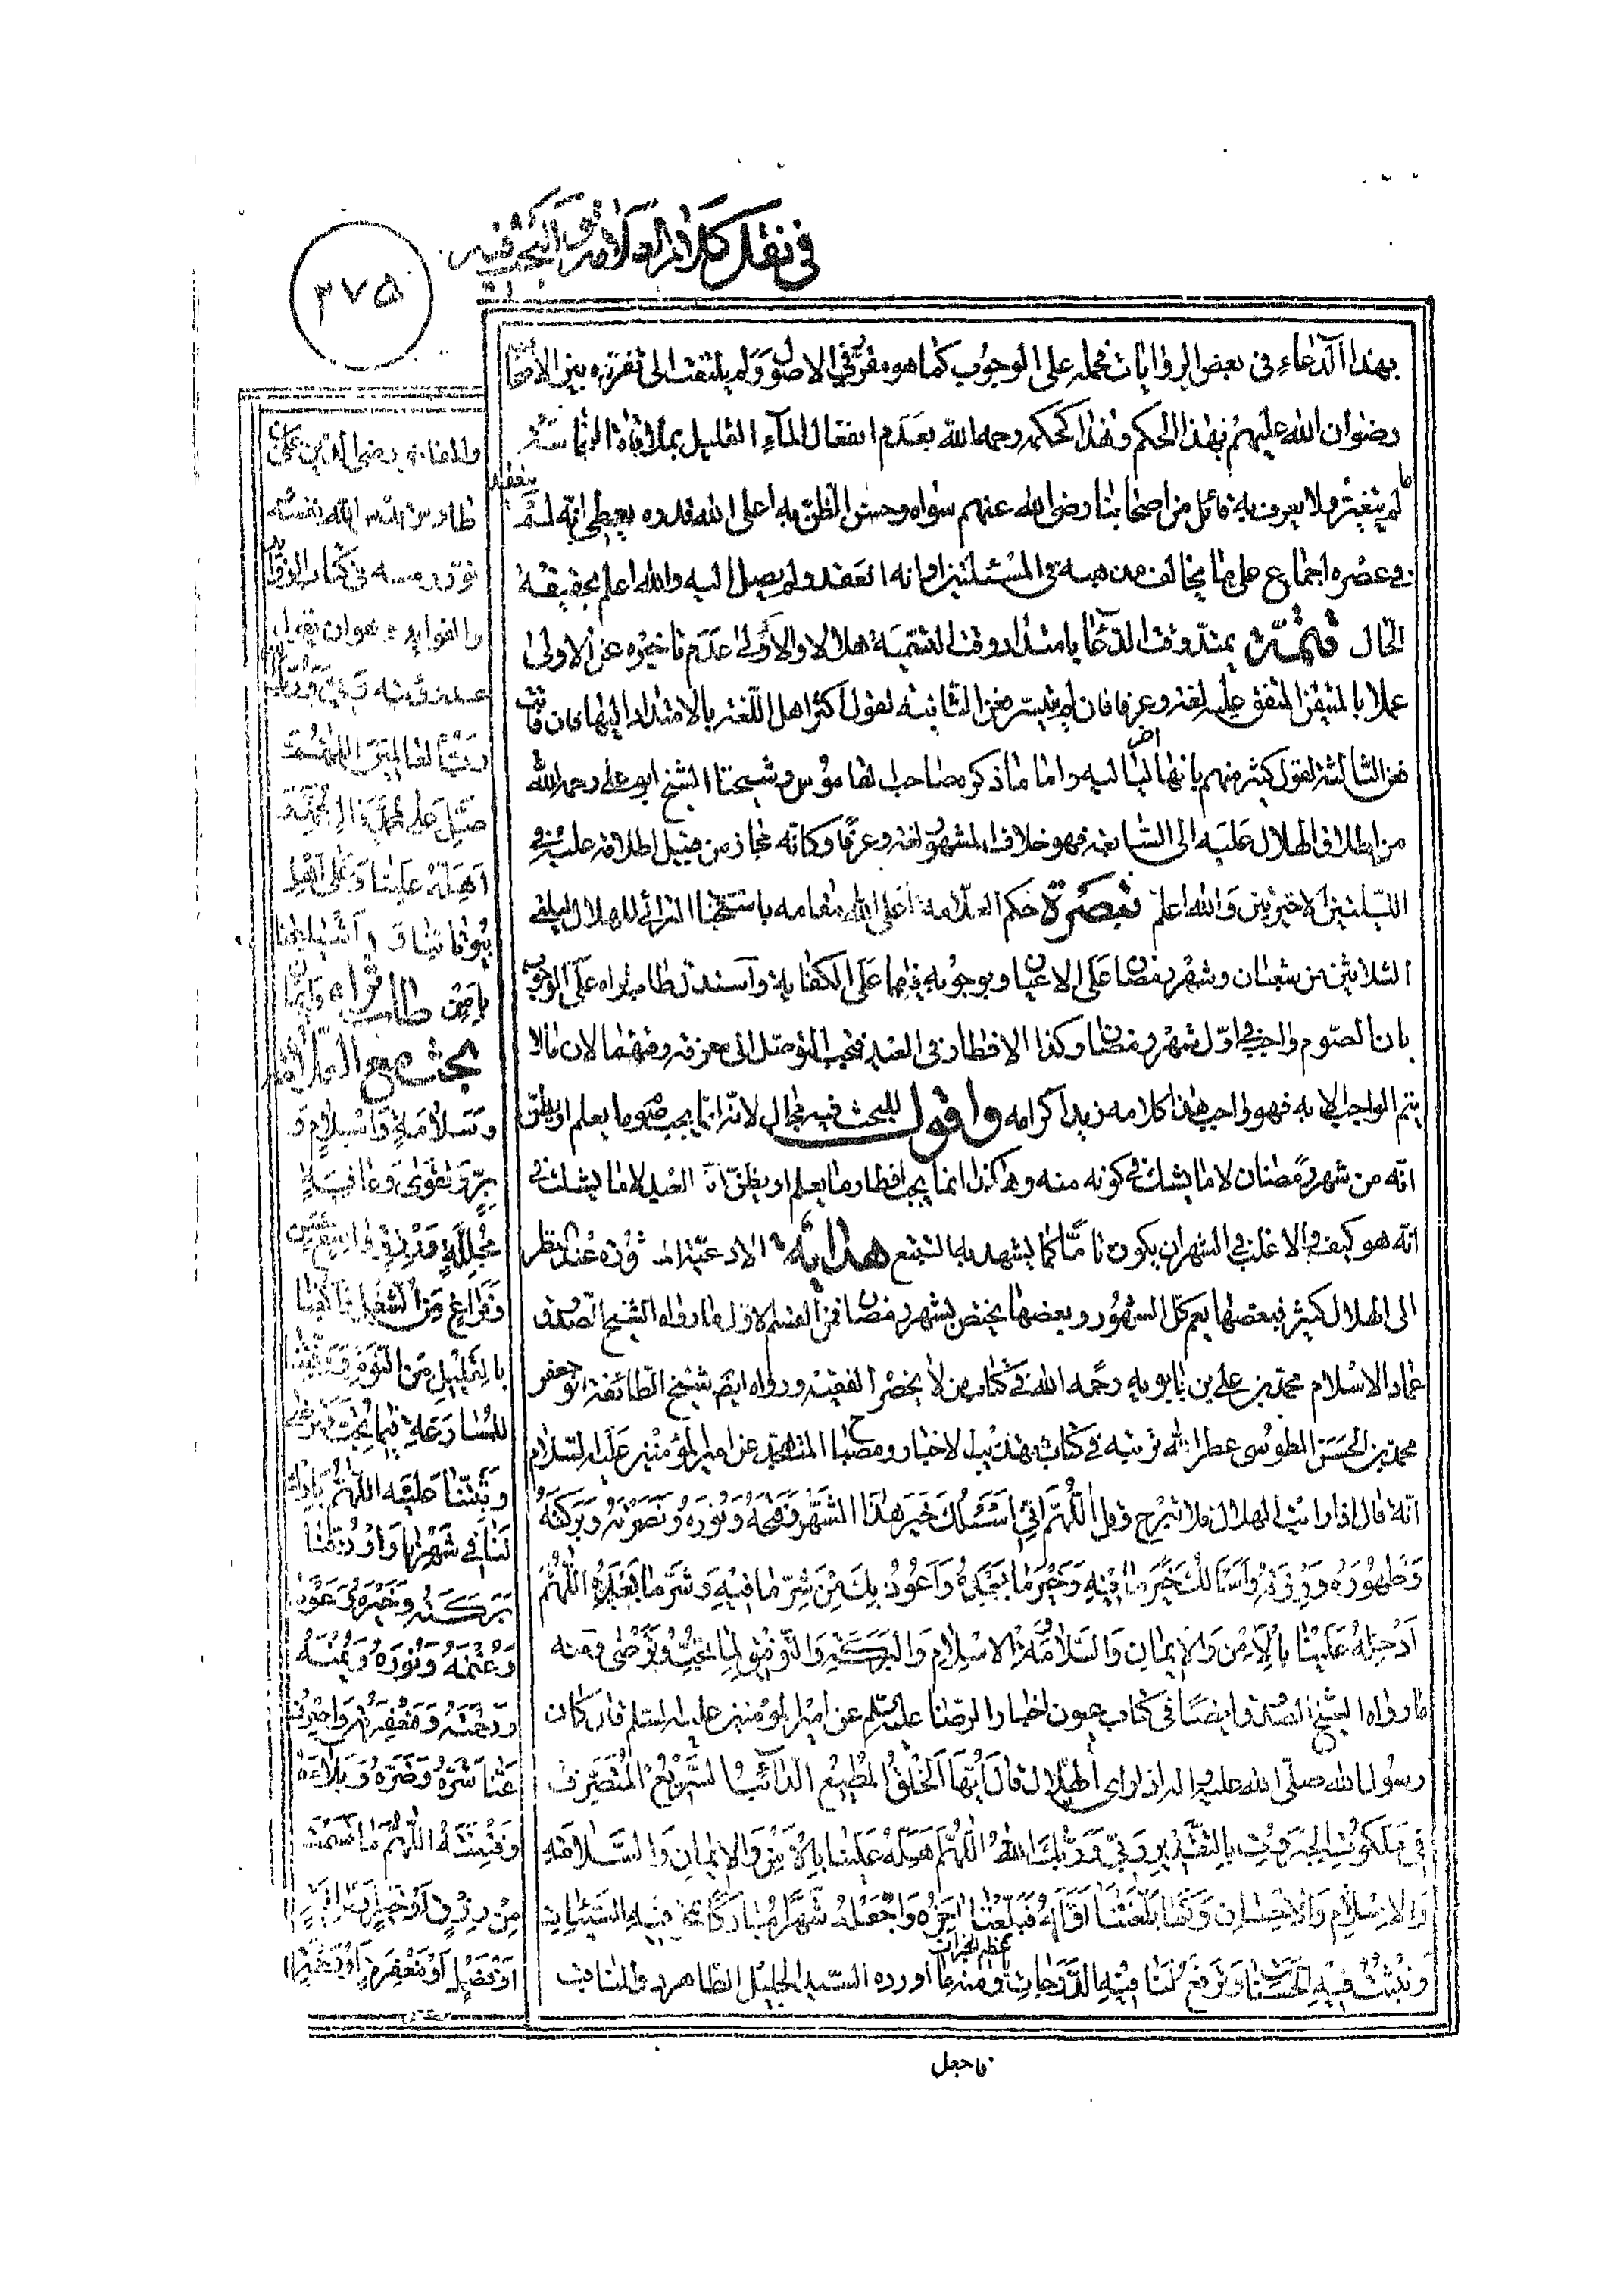 في نقل كلام العلامة والبحث فيه
٣٧٥
بهذا الدعاء في بعض الروايات فحمله على الوجوب كما هو مقرر في الاصول ولم يلتفت الى تفرده بين الاصحاب
رضوان الله عليهم بهذا الحكم وهذا كحكمه رحمه الله بعدم انفعال الماء القليل بملاقاة النجاسة
ما لم يتغير ولا يعرف به قائل من اصحابنا رضي الله عنهم سواه وحسن الظن به اعلى الله قدره يعطي انه لم ينعقد
في عصره اجماع على ما يخالف مذهبه في المسئلتين او انه انعقد ولم يصل اليه والله اعلم بحقيقة
الحال تتمة يمتد وقت الدعاء بامتداد وقت التسمية هلالا والاولى عدم تاخيره عن الاولى
عملا بالمتيقن المتفق عليه لغة وعرفا فان لم يتيسر فعن الثانية لقول اكثر اهل اللغة بالامتداد اليها فان فاتت
فعن الثالثة لقول كثير منهم بانها اخر لياليه واما ما ذكره صاحب القاموس وشيخنا الشيخ ابو علي رحمه الله
من اطلاق الهلال عليه الى السابعة فهو خلاف المشهور لغة وعرفا وكانه مجاز من قبيل اطلاقه عليه في
الليلتين الاخيرتين والله اعلم تبصرة حكم العلامة اعلى الله مقامه باستحباب الترائي للهلال ليلتي
الثلاثين من شعبان وشهر رمضان على الاعيان وبوجوبه فيهما على الكفاية واستدل طاب ثراه على الوجوب
بان الصوم واجب في اول شهر رمضان وكذا الافطار في العيد فيجب التوصل الى معرفة وقتهما لان ما لا
يتم الواجب الا به فهو واجب هذا كلامه زيد اكرامه واقول للبحث فيه مجال لانه انما يجب صوم ما يعلم او يظن
انه من شهر رمضان لا ما يشك في كونه منه وهكذا انما يجب افطار ما يعلم او يظن انه العيد لا ما يشك في
انه هو كيف والاغلب في الشهر ان يكون تاما كما يشهد به التتبع هداية الادعية الماثورة عند النظر
الى الهلال كثيرة فبعضها يعم كل الشهور وبعضها يختص بشهر رمضان فمن القسم الاول ما رواه الشيخ الصدوق
عماد الاسلام محمد بن علي بن بابويه رحمه الله في كتاب من لا يحضره الفقيه ورواه ايضا شيخ الطائفة ابو جعفر
محمد بن الحسن الطوسي عطر الله تربته في كتاب تهذيب الاخبار ومصباح المتهجد عن امير المؤمنين عليه السلام
انه قال اذا رايت الهلال فلا تبرح وقل اللهم اني اسئلك خير هذا الشهر وفتحه ونوره ونصره وبركته
وطهوره ورزقه واسالك خير ما فيه وخير ما بعده واعوذ بك من شر ما فيه وشر ما بعده اللهم
ادخله علينا بالامن والايمان والسلامة والاسلام والبركة والتوفيق لما تحب وترضى ومنه
ما رواه الشيخ الصدوق ايضا في كتاب عيون اخبار الرضا عليه السلم عن امير المؤمنين عليه السلم قال كان
رسول الله صلى الله عليه واله اذا راى الهلال قال ايها الخلق المطيع الدائب السريع المتصرف
في ملكوت الجبروت بالتقدير ربي وربك الله اللهم اهله علينا بالامن والايمان والسلامة
والاسلام والاحسان وكما بلغتنا اوله فبلغنا اخره واجعله شهرا مباركا تمحو فيه السيئات
وتثبت فيه الحسنات وترفع لنا فيه الدرجات يا عظيم الخيرات ومنه ما اورده السيد الجليل الطاهر ذو المناقب
والمفاخر رضي الدين علي بن
طاوس قدس الله نفسه
ونور رمسه في كتاب الزوائد
والفوائد وهو ان تقول
عند رؤيته ربي وربك
رب العالمين اللهم
صل على محمد وال محمد
اهله علينا وعلى اهل
بيوتنا واشياعنا
بامن طاب ثراه وايمان
بحث مع العلامة
وسلامة واسلام و
بر وتقوى وعافية
مجللة ورزق واسع حسن
وفراغ من الشغل واكفنا
بالقليل من النوم ووفقنا
للمسارعة فيما تحب وترضى
وثبتنا عليه اللهم بارك
لنا في شهرنا وارزقنا
بركته وخيره وعونه
وغنمه ونوره ويمنه
ورحمته ومغفرته واصرف
عنا شره وضره وبلاءه
وفتنته اللهم ما قسمت
من رزق او خير او عافية
او فضل او مغفرة او رحمة
فاجعل